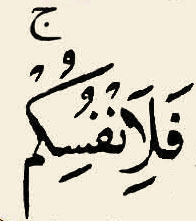 فَلِأَنْفُسِكُمْ ۚ